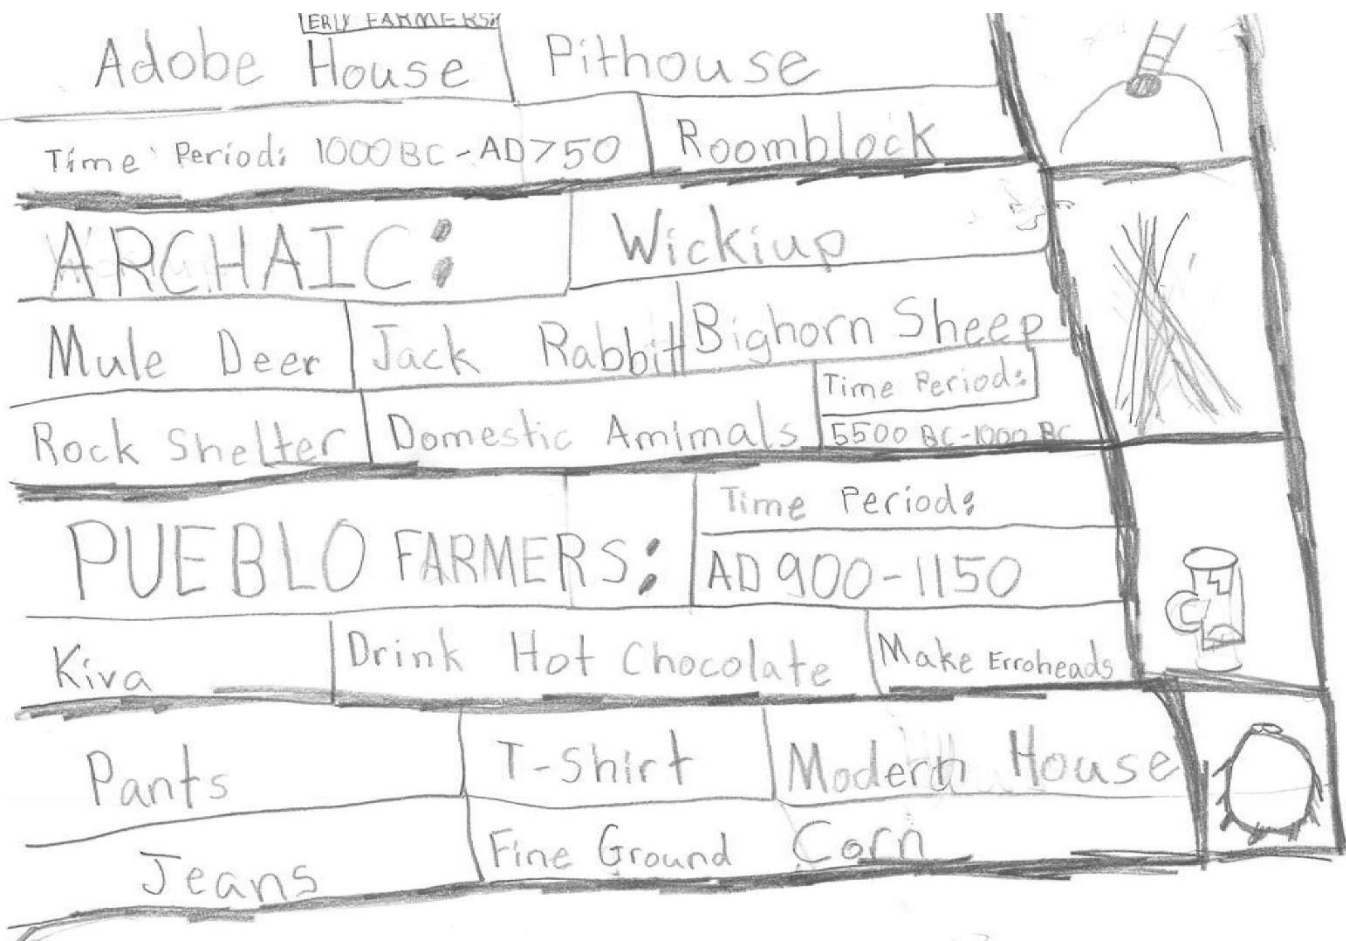 ERLY FARMERS:
Adobe House Pithouse
Time Period: 1000 BC-AD 750 Roomblock
ARCHAIC: Wickiup
Mule Deer Jack Rabbit Bighorn Sheep
Time Period:
Rock Shelter Domestic Amimals 5500 BC-1000 BC
Time Period:
PUEBLO FARMERS: AD 900-1150
Kiva Drink Hot Chocolate Make Erroheads
Pants T-Shirt Modern House
Jeans Fine Ground Corn